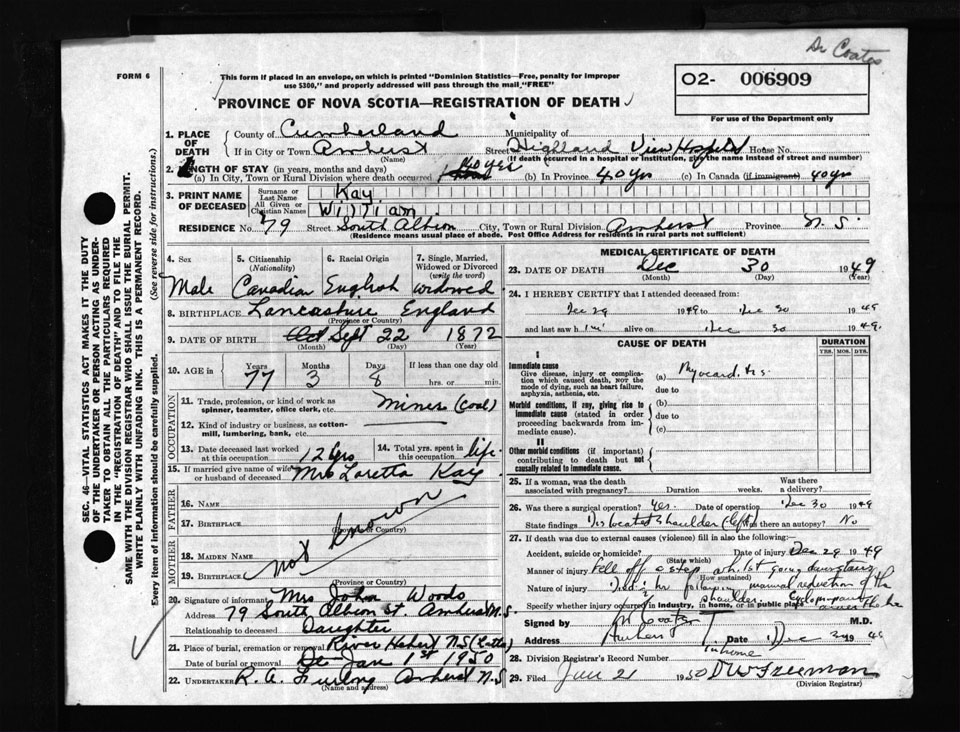 Dr Coates
FORM 6
This form if placed in an envelope, on which is printed "Dominion Statistics—Free, penalty for improper
use $300," and properly addressed will pass through the mail "FREE"
O2- 006909
For use of the Department only
PROVINCE OF NOVA SCOTIA—REGISTRATION OF DEATH
1. PLACE OF DEATH
County of Cumberland Municipality of
If in City or Town Amherst Street Highland View Hospital House No.
(Name) (If death occurred in a hospital or institution, give the name instead of street and number)
2. LENGTH OF STAY (in years, months and days)
(a) In City, Town or Rural Division where death occurred 40 yrs (b) In Province 40 yrs (c) In Canada (if immigrant) 40 yrs
3. PRINT NAME OF DECEASED
Surname or Last Name Kay
All Given or Christian Names William
RESIDENCE No. 79 Street South Albion City, Town or Rural Division Amherst Province N. S.
(Residence means usual place of abode. Post Office Address for residents in rural parts not sufficient)
4. Sex 5. Citizenship (Nationality) 6. Racial Origin 7. Single, Married, Widowed or Divorced (write the word)
Male Canadian English widowed
8. BIRTHPLACE Lancashire England
(Province or Country)
9. DATE OF BIRTH Oct Sept 22 1872
(Month) (Day) (Year)
10. AGE in Years Months Days If less than one day old
77 3 8 hrs. or min.
OCCUPATION
11. Trade, profession, or kind of work as
spinner, teamster, office clerk, etc. Miner (Coal)
12. Kind of industry or business, as cotton-
mill, lumbering, bank, etc.
13. Date deceased last worked at this occupation 12 yrs 14. Total yrs. spent in this occupation life
15. If married give name of wife or husband of deceased Mrs Loretta Kay
FATHER
16. NAME
17. BIRTHPLACE
(Province or Country)
MOTHER
18. MAIDEN NAME
19. BIRTHPLACE
(Province or Country)
not known
20. Signature of informant Mrs John Woods
Address 79 South Albion St. Amherst N.S.
Relationship to deceased Daughter
21. Place of burial, cremation or removal River Hebert N.S.
Date of burial or removal De Jan 1st 1950
22. UNDERTAKER R. A. Furlong Amherst N.S
(Name and address)
MEDICAL CERTIFICATE OF DEATH
23. DATE OF DEATH Dec 30 1949
(Month) (Day) (Year)
24. I HEREBY CERTIFY that I attended deceased from:
Dec 29 1949 to Dec 30 1949
and last saw him alive on Dec 30 1949
CAUSE OF DEATH
DURATION
YRS. MOS. DYS.
I
Immediate cause
Give disease, injury or complication which caused death, NOT the mode of dying, such as heart failure, asphyxia, asthenia, etc.
(a)
due to
Morbid conditions, if any, giving rise to immediate cause (stated in order proceeding backwards from immediate cause).
(b)
due to
(c)
II
Other morbid conditions (if important) contributing to death but not causally related to immediate cause.
25. If a woman, was the death associated with pregnancy? Duration weeks. Was there a delivery?
26. Was there surgical operation? Yes. Date of operation Dec 30 1949
State findings Dislocated shoulder (left) Was there an autopsy? No
27. If death was due to external causes (violence) fill in also the following:—
Accident, suicide or homicide? Date of injury Dec 29 1949
(State which)
Manner of injury fell off a step whilst going downstairs
(How sustained)
Nature of injury manual reduction of the
shoulder.
Specify whether injury occurred in industry, in home, or in public place
in home
Signed by Coates M.D.
Address Amherst Date Dec 30 1949
28. Division Registrar's Record Number
29. Filed Jan 2 1950 D W Freeman
(Division Registrar)
SEC. 46—VITAL STATISTICS ACT MAKES IT THE DUTY
OF THE UNDERTAKER OR PERSON ACTING AS UNDER-
TAKER TO OBTAIN ALL THE PARTICULARS REQUIRED
IN THE "REGISTRATION OF DEATH" AND TO FILE THE
SAME WITH THE DIVISION REGISTRAR WHO SHALL ISSUE THE BURIAL PERMIT.
WRITE PLAINLY WITH UNFADING INK. THIS IS A PERMANENT RECORD.
Every item of information should be carefully supplied. (See reverse side for instructions.)